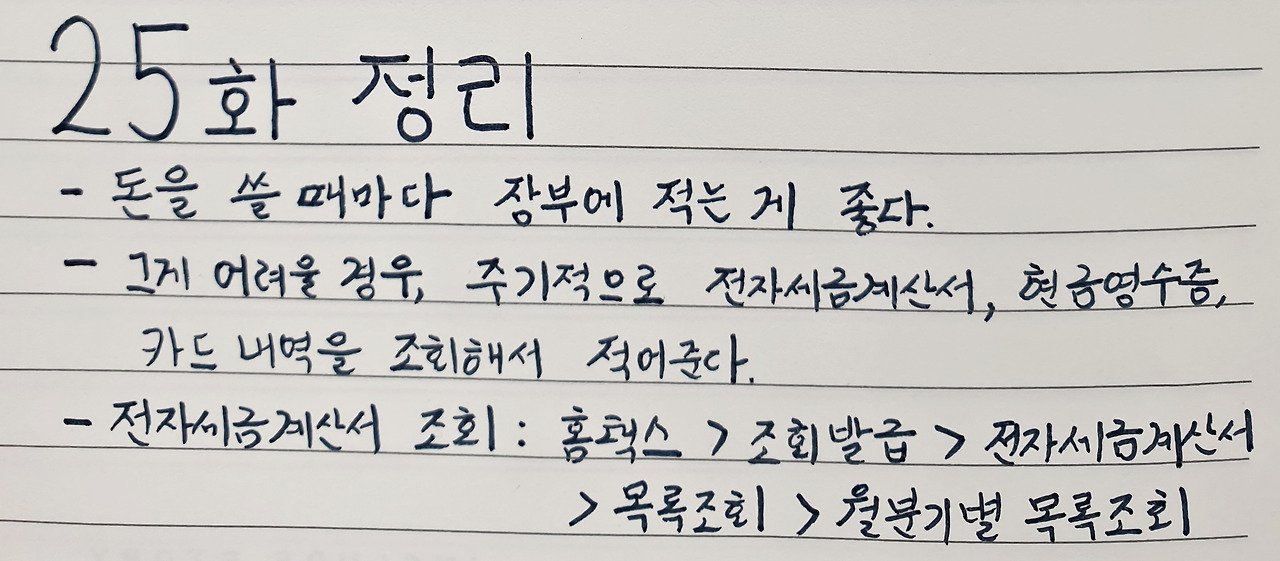 25화 정리
- 돈을 쓸 때마다 장부에 적는 게 좋다.
- 그게 어려울 경우, 주기적으로 전자세금계산서, 현금영수증,
카드 내역을 조회해서 적어준다.
- 전자세금계산서 조회 : 홈택스 > 조회발급 > 전자세금계산서
> 목록조회 > 월분기별 목록조회